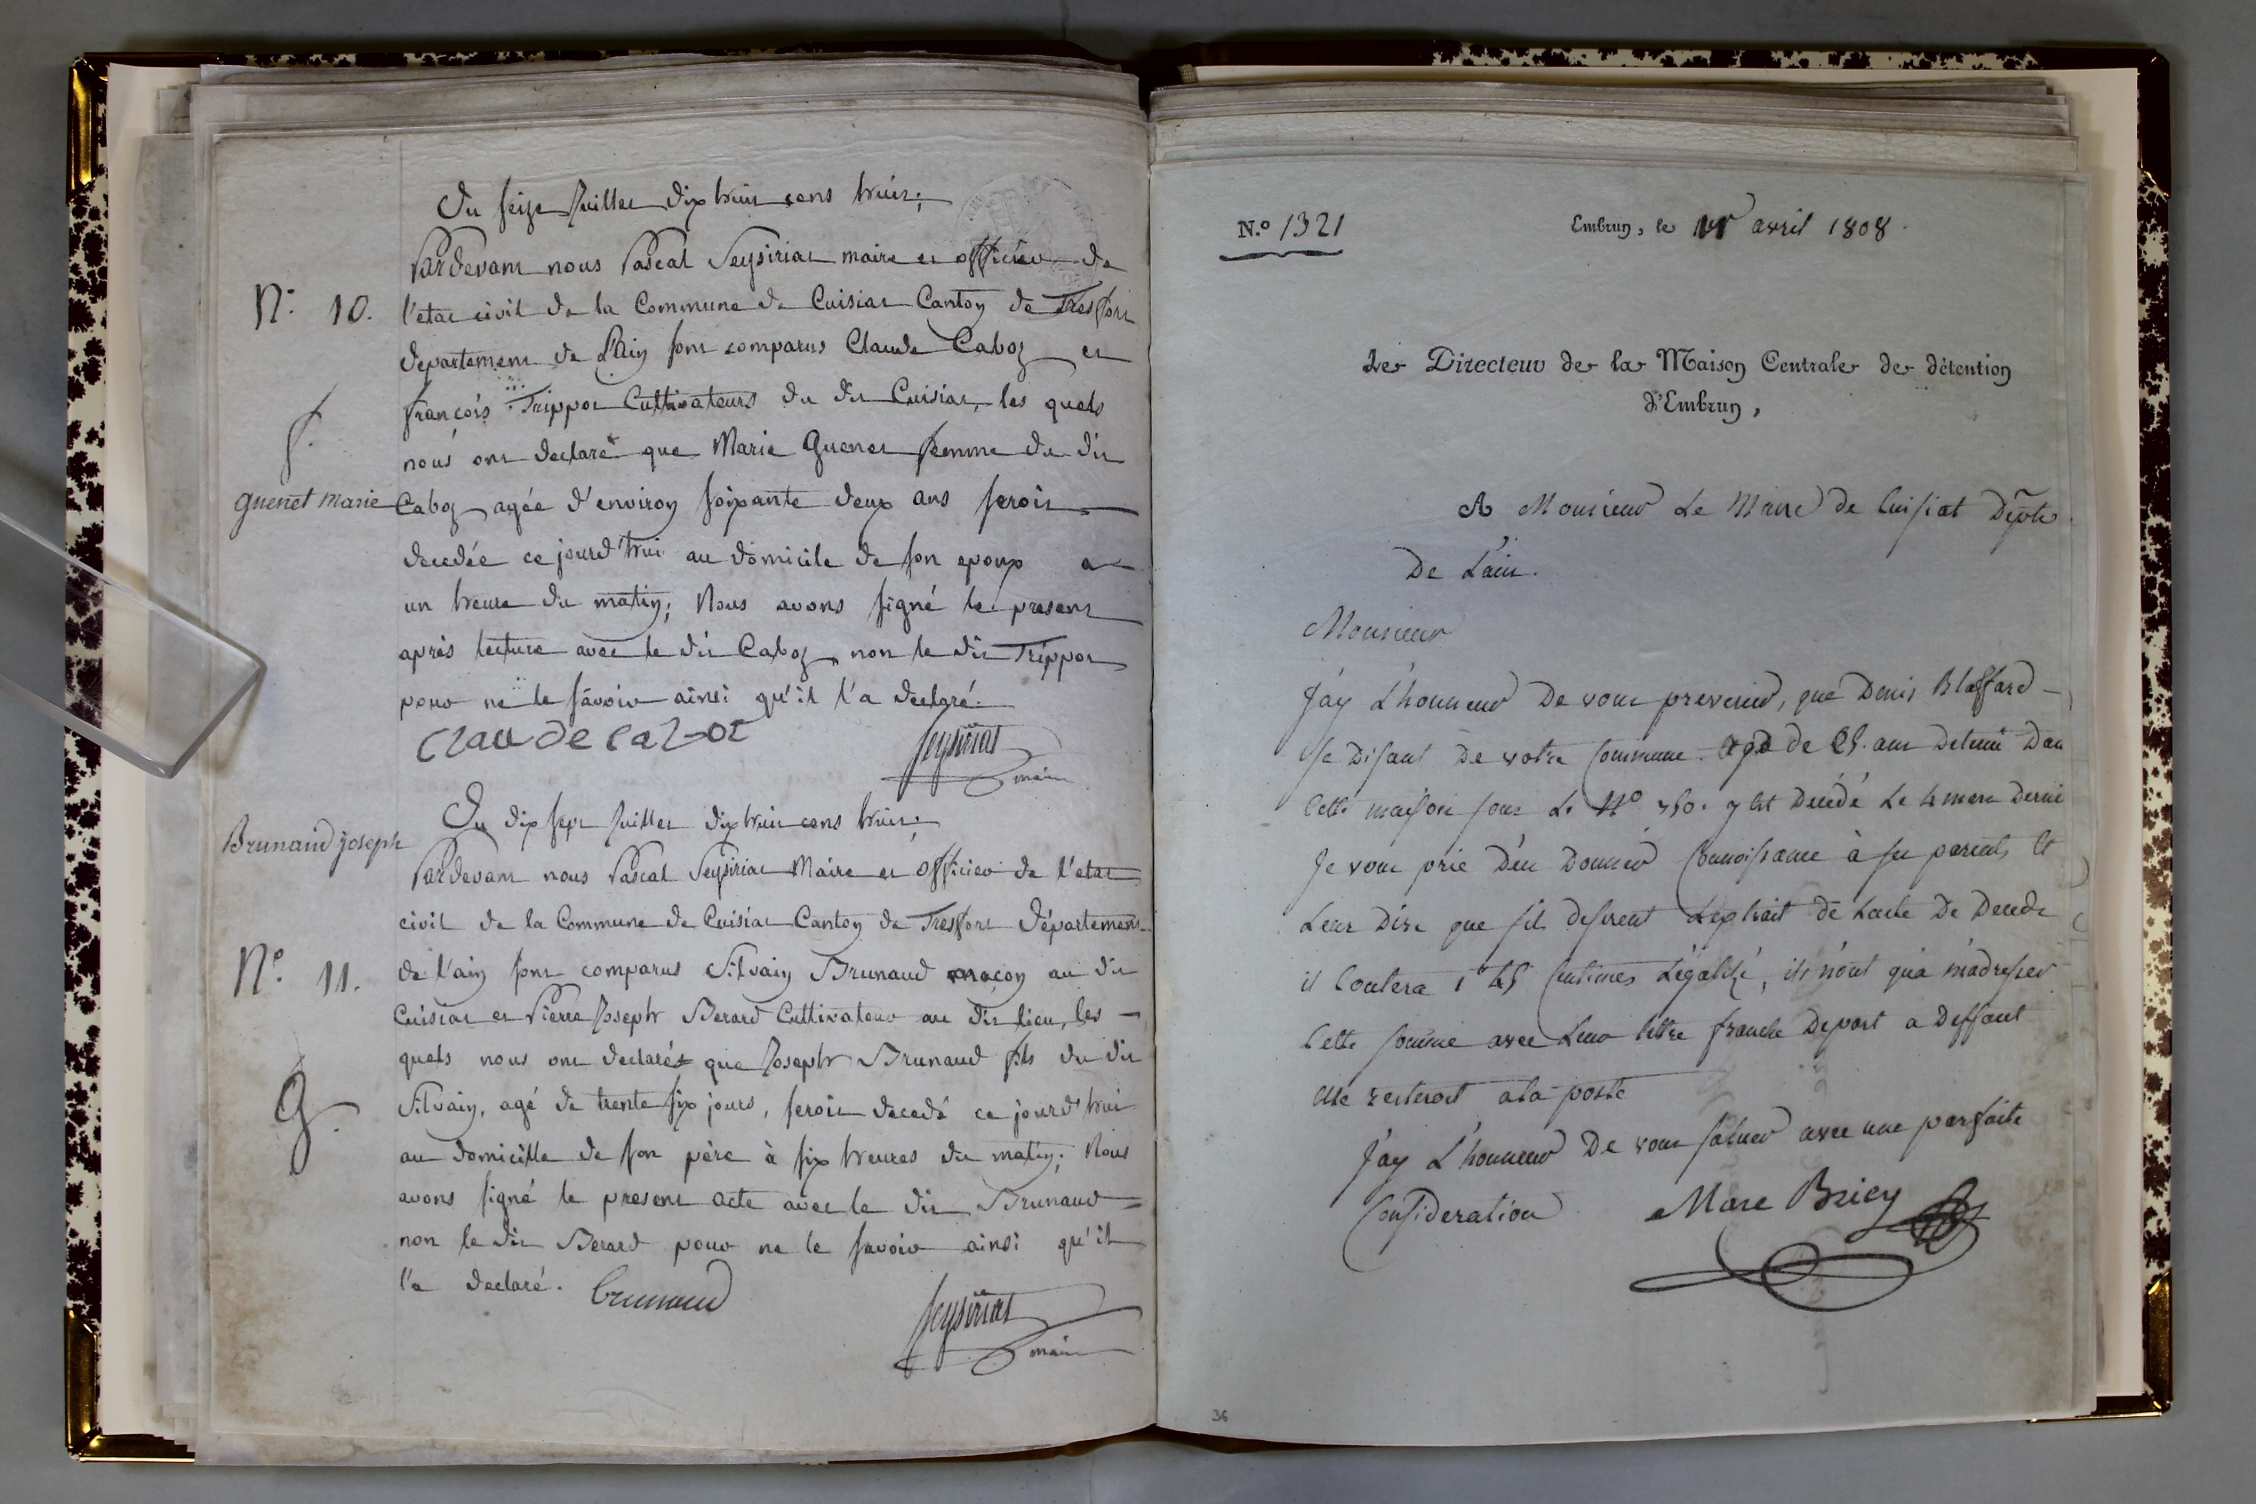 Du seize Juillet dix huit cens huit;
Pardevant nous Pascal Seysiriat maire et officier de
N.° 10.
l'etat civil de la Commune de Cuisiat Canton de Tresfort
departement de L'Ain sont comparus Claude Caboz et
françois Trippot Cultivateurs du dit Cuisiat, les quels
nous ont declaré que Marie Guenet femme du dit
guenet marie
Caboz agée d'environ soixante deux ans seroit
decedée ce jourd'hui au domicile de son epoux a
un heure du matin; Nous avons signé le present
après lecture avec le dit Caboz, non le dit Trippot
pour ne le sávoir ainsi qu'il l'a declaré.
Claude cabot
Seysiriat
maire
Du dix sept Juillet dix huit cens huit;
Brunaud joseph
Pardevant nous Pascal Seysiriat Maire et Officier de l'etat
civil de la Commune de Cuisiat Canton de Tresfort Département
N.° 11.
de l'ain sont comparus Silvain Brunaud maçon au dit
Cuisiat et Pierre Joseph Berard Cultivateur au dit lieu, les
quels nous ont declarés que Joseph Brunaud fils du dit
g.
Silvain, agé de trente six jours, seroit decedé ce jourd'hui
au domicille de son père à six heures du matin; Nous
avons signé le present acte avec le dit Brunaud
non le dit Berard pour ne le savoir ainsi qu'il
l'a declaré.
brunaud
Seysiriat
maire
N.° 1321
Embrun, le avril 1808.
Le Directeur de la Maison Centrale de détention
d'Embrun,
A Monsieur Le Maire de Cuisiat Depte
De L'ain.
Monsieur
J'ay L'honneur De vous prevenir, que Denis Blaffard
se Disant De votre Commune agé de 25. ans Detenu Dan
Cette maison sous Le N° 750. y Est Decédé Le 4 mars Dernie
Je vous prie D'en Donner Connoissance à ses parents Et
Leur Dire que s'ils desirent L'extrait de L'acte De Decede
il Coutera 1f 25 Centimes Légalizé, ils n'ont qu'a m'adresser
Cette somme avec Leur lettre franche Deport a Deffaut
elle resteroit ala poste
J'ay L'honneur De vous saluer avec une parfaite
Consideration
Marc Bricy
36